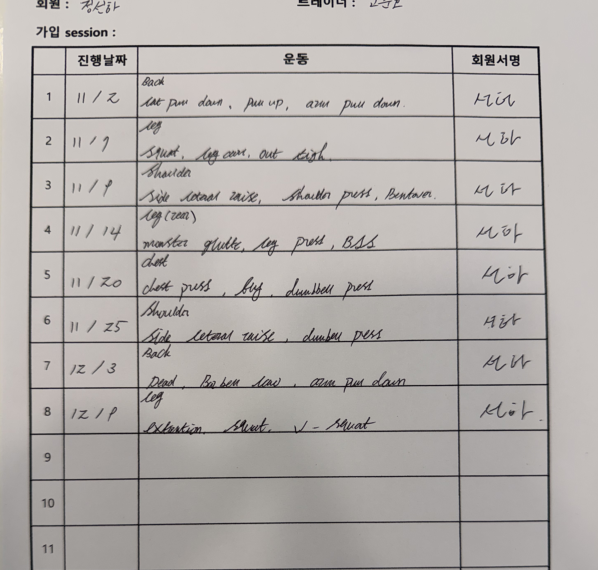 회원 : 정선하 트레이너 :
가입 session :
진행날짜 운동 회원서명
1 11 / 2 Back
Lat pull down, Pull up, arm pull down. 서하
2 11 / 7 leg
squat, leg curl, out thigh. 서하
3 11 / 9 Shoulder
Side lateral raise, Shoulder press, Bentover. 서하
4 11 / 14 leg (rear)
monster glute, leg press, BSS 서하
5 11 / 20 chest
chest press, fly, dumbbell press 서하
6 11 / 25 Shoulder
Side lateral raise, dumbell press 서하
7 12 / 3 Back
Dead, Barbell row, arm pull down 서하
8 12 / 9 leg
extention, squat, V - squat 서하
9
10
11